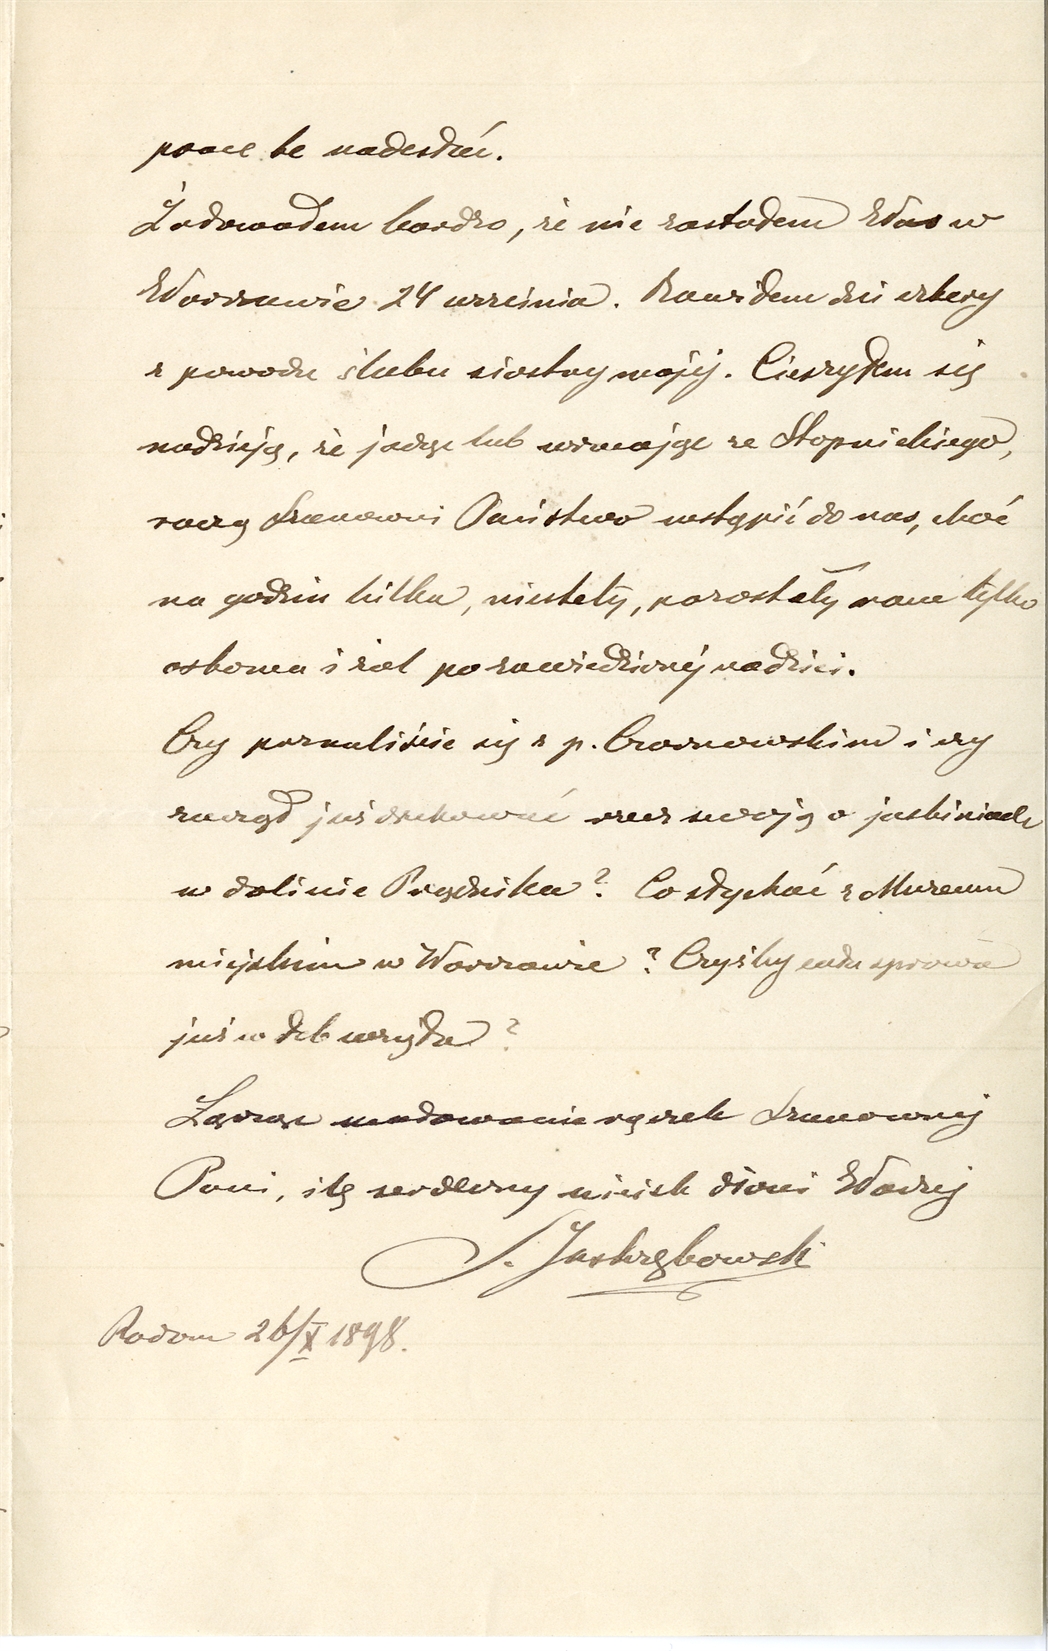 prace te nadesłać.
Żałowałem bardzo, że nie zastałem Was w
Warszawie 24 września. Bawiłem dni cztery
z powodu ślubu siostry mojéj. Cieszyłem się
nadzieją, że jadąc lub wracając ze Stopnickiego,
raczą Szanowni Państwo wstąpić do nas, choć
na godzin kilka, niestety, pozostały nam tylko
oskoma i żal po zawiedzionéj nadziei.
Czy poznaliście się z p. Czarnowskim i czy
zaczął już drukować rzecz swoją o jaskiniach
w dolinie Prądnika? Co słychać z Muzeum
miejskim w Warszawie? Czyżby cała sprawa
już w łeb wzięła?
Łącząc ucałowanie rączek Szanownéj
Pani, ślę serdeczny uścisk dłoni Waszéj
S. Jastrzębowski
Radom 26/X 1898.